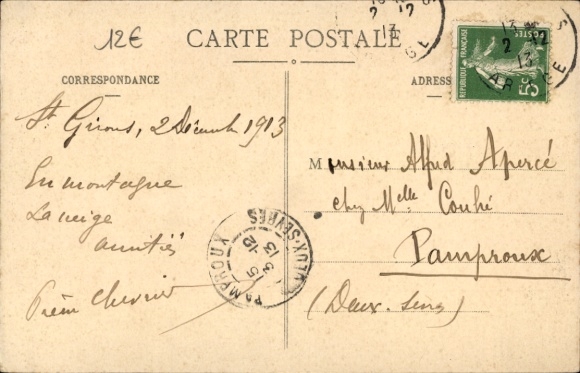 12€
CARTE POSTALE
CORRESPONDANCE
ADRESS
REPUBLIQUE FRANÇAISE
POSTES
5c
13
2
13
ARIEGE
St Girons, 2 Décembre 1913
En montagne
La neige
amitiés
Pierre Chevrier
Monsieur Alfred Apercé
chez Melle Couhé
Pamproux
(Deux-Sèvres)
PAMPROUX
DEUX-SEVRES
5-12
13